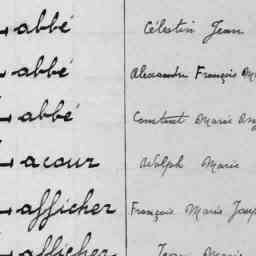 Labbé Célestin Jean
Labbé Alexandre François
Labbé Constant Marie
Lacour Adolph Marie
Lafficher François Marie
Lafficher Jean Marie